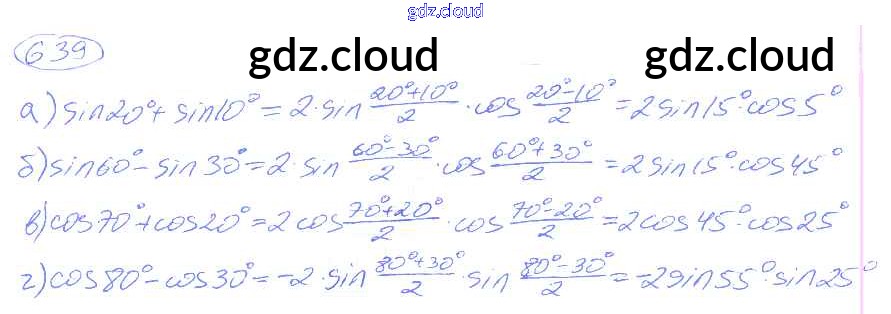 gdz.cloud
639
gdz.cloud gdz.cloud
а) sin20°+ sin10° = 2·sin (20°+10°)/2 · cos (20°-10°)/2 = 2sin15°·cos5°
б) sin60°- sin30° = 2·sin (60°-30°)/2 · cos (60°+30°)/2 = 2sin15°·cos45°
в) cos70°+cos20° = 2cos (70°+20°)/2 · cos (70°-20°)/2 = 2cos45°·cos25°
г) cos80°-cos30° = -2·sin (80°+30°)/2 · sin (80°-30°)/2 = -2sin55°·sin25°